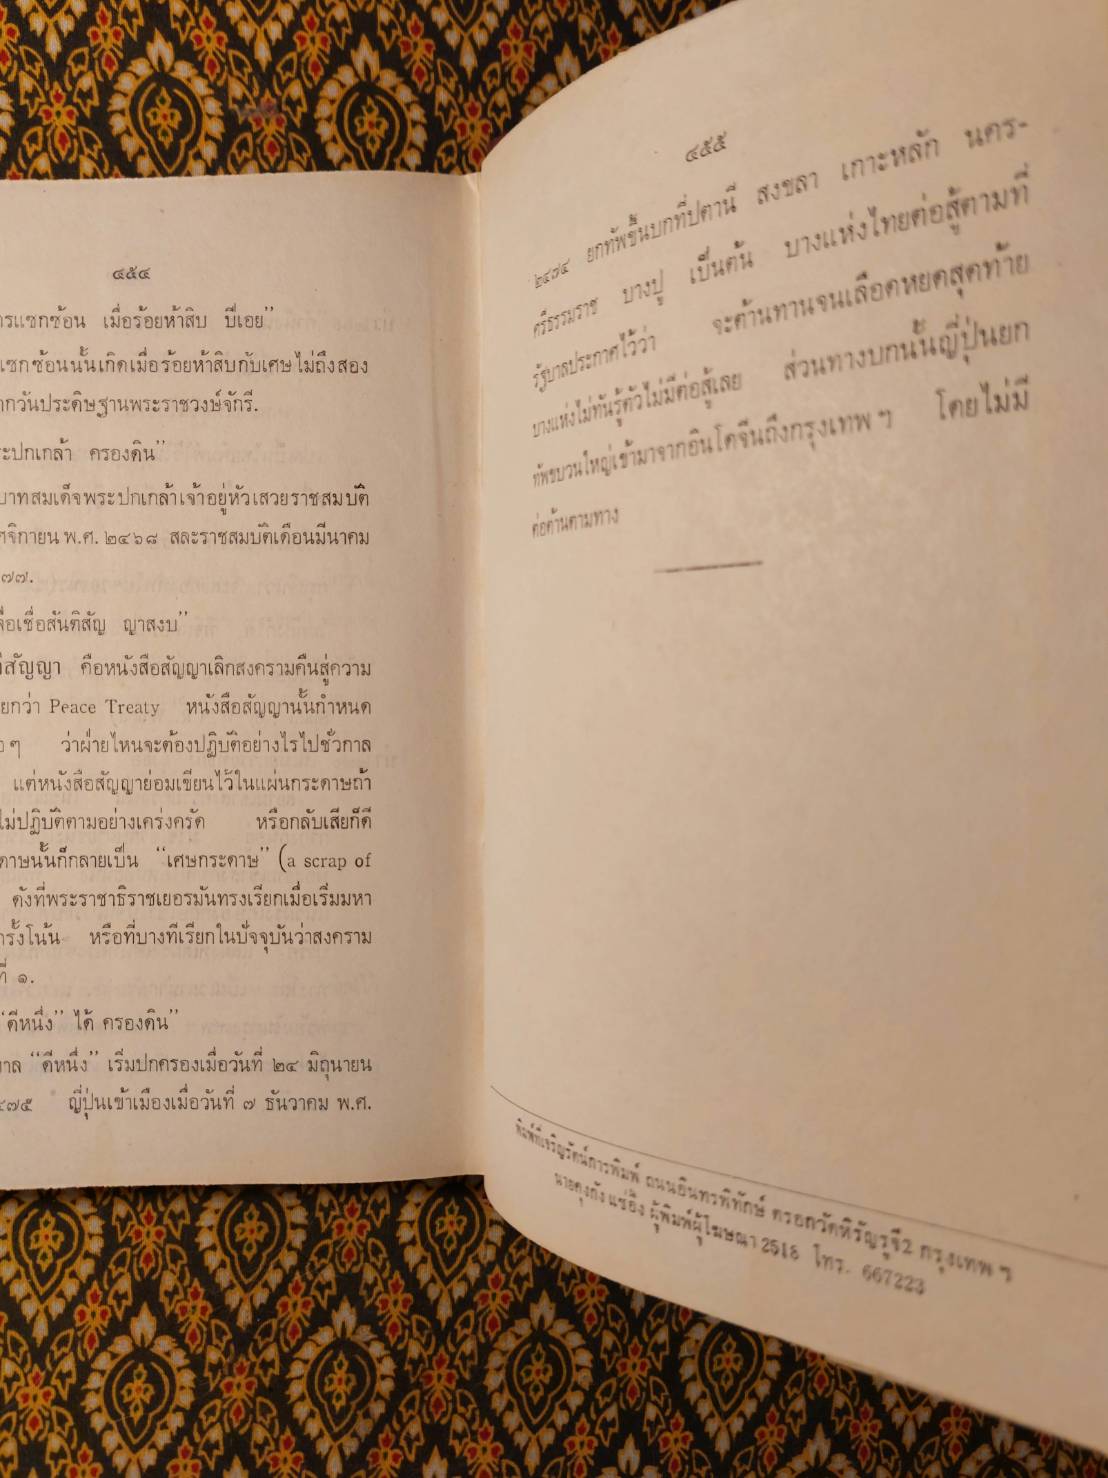 ๔๕๔
รแซกซ้อน เมื่อร้อยห้าสิบ ปีเอย”
แซกซ้อนนั้นเกิดเมื่อร้อยห้าสิบกับเศษไม่ถึงสอง
ากวันประดิษฐานพระราชวงษ์จักรี.
ระปกเกล้า ครองดิน”
บาทสมเด็จพระปกเกล้าเจ้าอยู่หัวเสวยราชสมบัติ
ศจิกายน พ.ศ. ๒๔๖๘ สละราชสมบัติเดือนมีนาคม
๗๗.
อเชื่อสันติสัญ ญาสงบ”
สัญญา คือหนังสือสัญญาเลิกสงครามคืนสู่ความ
ยกว่า Peace Treaty หนังสือสัญญานั้นกำหนด
ๆ ว่าฝ่ายไหนจะต้องปฏิบัติอย่างไรไปชั่วกาล
แต่หนังสือสัญญาย่อมเขียนไว้ในแผ่นกระดาษถ้า
ไม่ปฏิบัติตามอย่างเคร่งครัด หรือกลับเสียก็ดี
ดาษนั้นก็กลายเป็น “เศษกระดาษ” (a scrap of
ดังที่พระราชาธิราชเยอรมันทรงเรียกเมื่อเริ่มมหา
ครั้งโน้น หรือที่บางทีเรียกในปัจจุบันว่าสงคราม
ที่ ๑.
“ดีหนึ่ง” ได้ ครองดิน”
าล “ดีหนึ่ง” เริ่มปกครองเมื่อวันที่ ๒๔ มิถุนายน
๔๗๕ ญี่ปุ่นเข้าเมืองเมื่อวันที่ ๗ ธันวาคม พ.ศ.
๔๕๕
๒๔๗๔ ยกทัพขึ้นบกที่ปตานี สงขลา เกาะหลัก นคร-
ศรีธรรมราช บางปู เป็นต้น บางแห่งไทยต่อสู้ตามที่
รัฐบาลประกาศไว้ว่า จะต้านทานจนเลือดหยดสุดท้าย
บางแห่งไม่ทันรู้ตัวไม่มีต่อสู้เลย ส่วนทางบกนั้นญี่ปุ่นยก
ทัพขบวนใหญ่เข้ามาจากอินโดจีนถึงกรุงเทพ ฯ โดยไม่มี
ต่อต้านตามทาง
พิมพ์ที่เจริญรัตน์การพิมพ์ ถนนอินทรพิทักษ์ ตรอกวัดหิรัญรูจี2 กรุงเทพ ฯ
นายคุงกัง แซ่อึ๊ง ผู้พิมพ์ผู้โฆษณา 2518 โทร. 667223